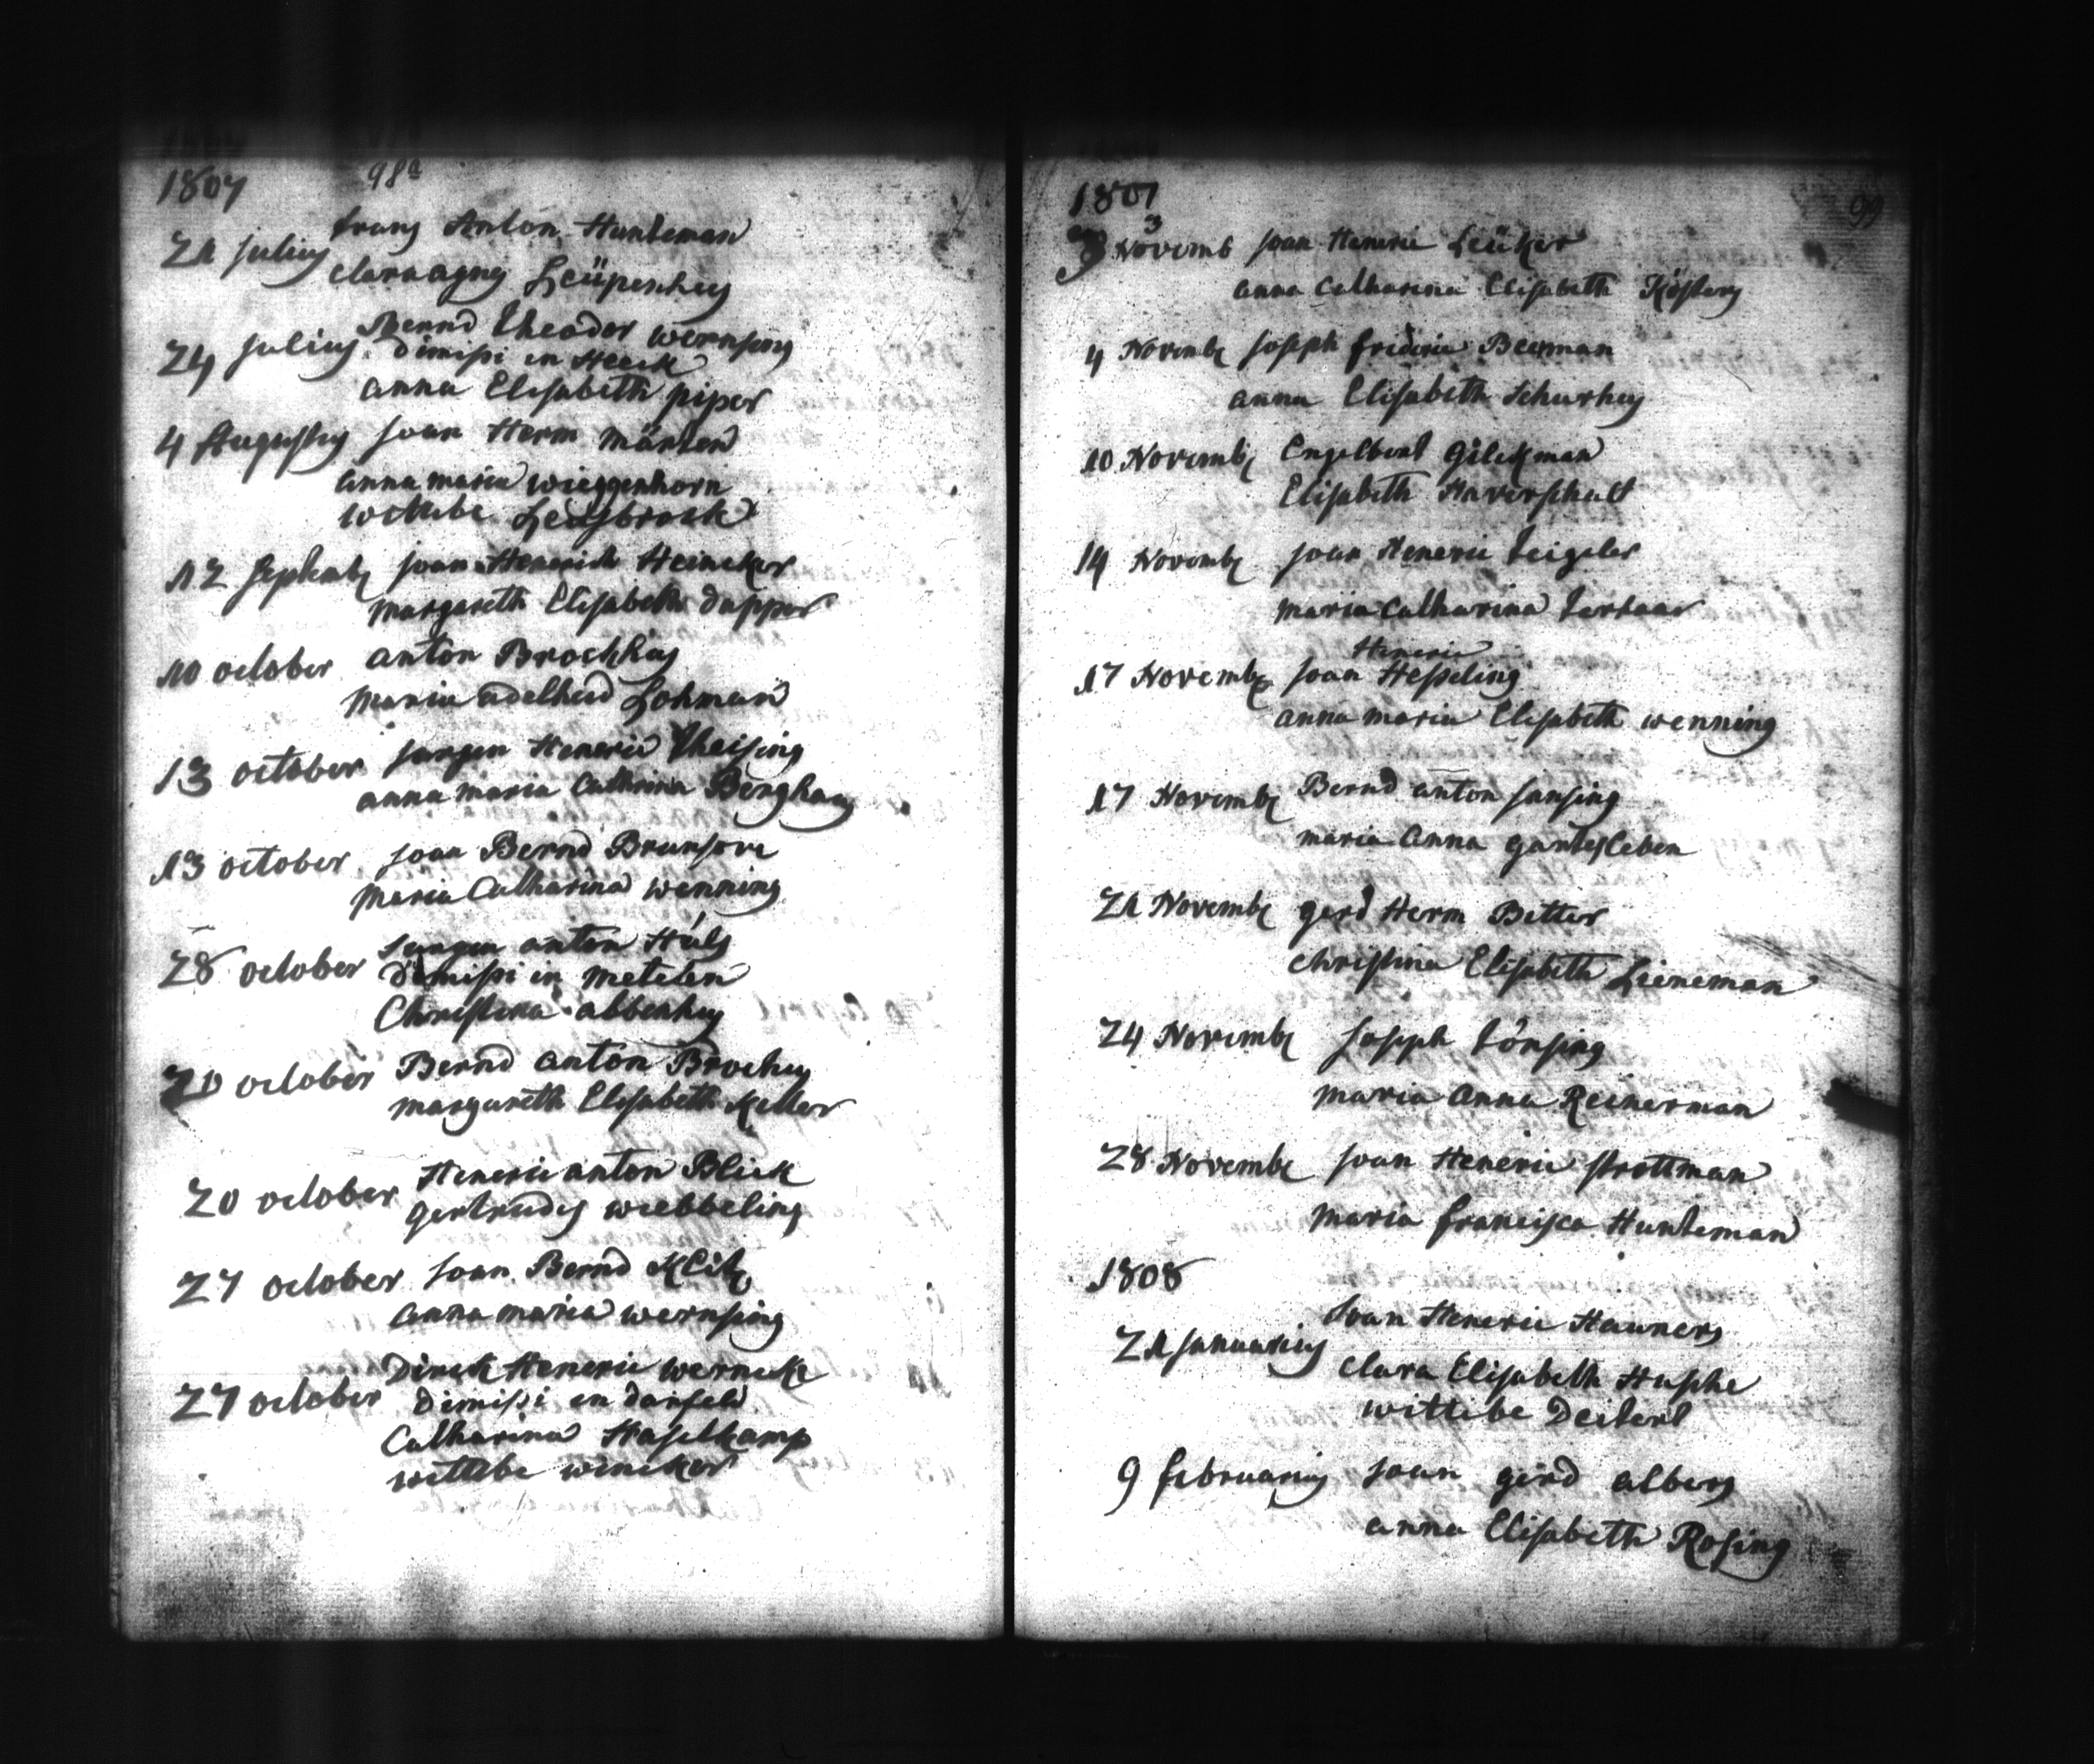 1807 98a
21 julius frans Anton Hunteman
clara agnes Leüpenhus
24 julius Bernd theodor wernsing
dimissi in Heeck
anna Elisabeth piper
4 Augustus joan Herm märten
anna maria wieggenhorn
wittibe Leusbrock
12 septemb joan Henrich Heineker
margareth Elisabeth dupper
10 october anton Brockhus
maria adelheid Lohman
13 october jurgen Heneric theising
anna maria Cathrina Berghaus
13 october joan Bernd Brunsove
maria Catharina wenning
28 october jurgen anton Hüls
dimissi in metelen
Christina abbenhus
20 october Bernd anton Brochus
margareth Elisabeth Keller
20 october Heneric anton Blick
gertrudis wiebbeling
27 october joan Bernd
anna maria wernsing
27 october Direk Heneric werneke
dimissi in darfeld
Catharina Haselkamp
wittibe wineker
1807 99
3 Novemb joan Heneric Leüker
anna Catharina Elisabeth Kösters
4 Novemb joseph frideric Beerman
anna Elisabeth schurhus
10 Novemb Engelbert gilekman
Elisabeth Haverschult
14 Novemb joan Heneric teigeler
maria Catharina terhaar
Heneric
17 Novemb joan Hesseling
anna maria Elisabeth wenning
17 Novemb Bernd anton jansing
maria anna gantesleben
21 Novemb gerd Herm Bitter
christina Elisabeth Lieneman
24 Novemb joseph tönsing
maria anna Reinerman
28 Novemb joan Heneric strottman
maria francisca Hunteman
1808
21 januarius joan Heneric Hauners
clara Elisabeth Husche
wittibe Deitert
9 februarius joan gerd albers
anna Elisabeth Rosing